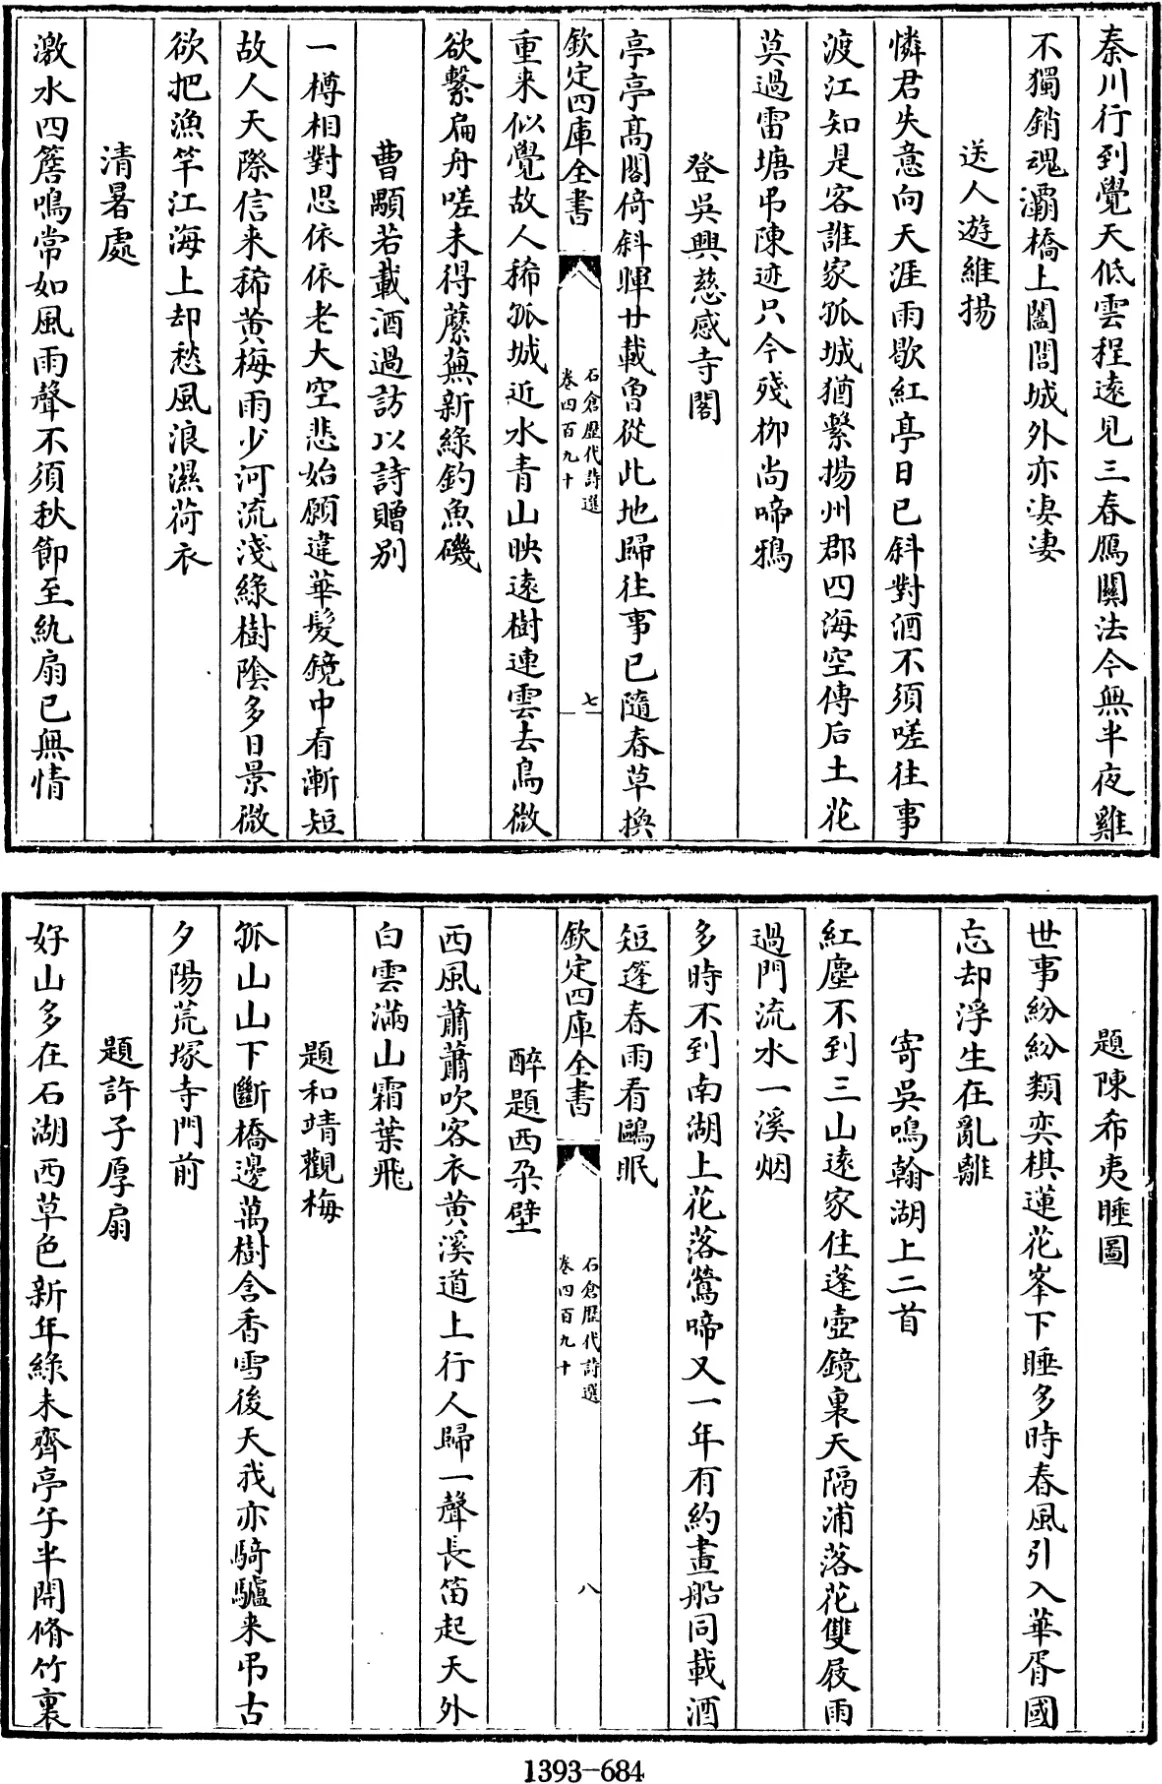 秦川行到覺天低雲程遠見三春鴈關法今無半夜雞
不獨銷魂灞橋上闔閭城外亦淒淒
送人遊維揚
憐君失意向天涯雨歇紅亭日已斜對酒不須嗟往事
渡江知是客誰家孤城猶繫揚州郡四海空傳后土花
莫過雷塘弔陳迹只今殘栁尚啼鴉
登吳興慈感寺閣
亭亭髙閣倚斜暉廿載曾從此地歸往事已隨春草換
欽定四庫全書
石倉歷代詩選
卷四百九十
七
重来似覺故人稀孤城近水青山映遠樹連雲去鳥微
欲繫扁舟嗟未得蘼蕪新綠釣魚磯
曹顒若載酒過訪以詩贈别
一樽相對思依依老大空悲始願違華髮鏡中看漸短
故人天際信来稀黄梅雨少河流淺綠樹陰多日景微
欲把漁竿江海上却愁風浪濕荷衣
清暑處
激水四簷鳴常如風雨聲不須秋節至紈扇已無情
題陳希夷睡圖
世事紛紛類奕棋蓮花峯下睡多時春風引入華胥國
忘却浮生在亂離
寄吳鳴翰湖上二首
紅塵不到三山遠家住蓬壺鏡裏天隔浦落花雙屐雨
過門流水一溪烟
多時不到南湖上花落鶯啼又一年有約畫船同載酒
短蓬春雨看鷗眠
欽定四庫全書
石倉歷代詩選
卷四百九十
八
醉題西朶壁
西風蕭蕭吹客衣黄溪道上行人歸一聲長笛起天外
白雲滿山霜葉飛
題和靖觀梅
孤山山下斷橋邊萬樹含香雪後天我亦騎驢来弔古
夕陽荒塚寺門前
題許子厚扇
好山多在石湖西草色新年綠未齊亭子半開脩竹裏
1393-684